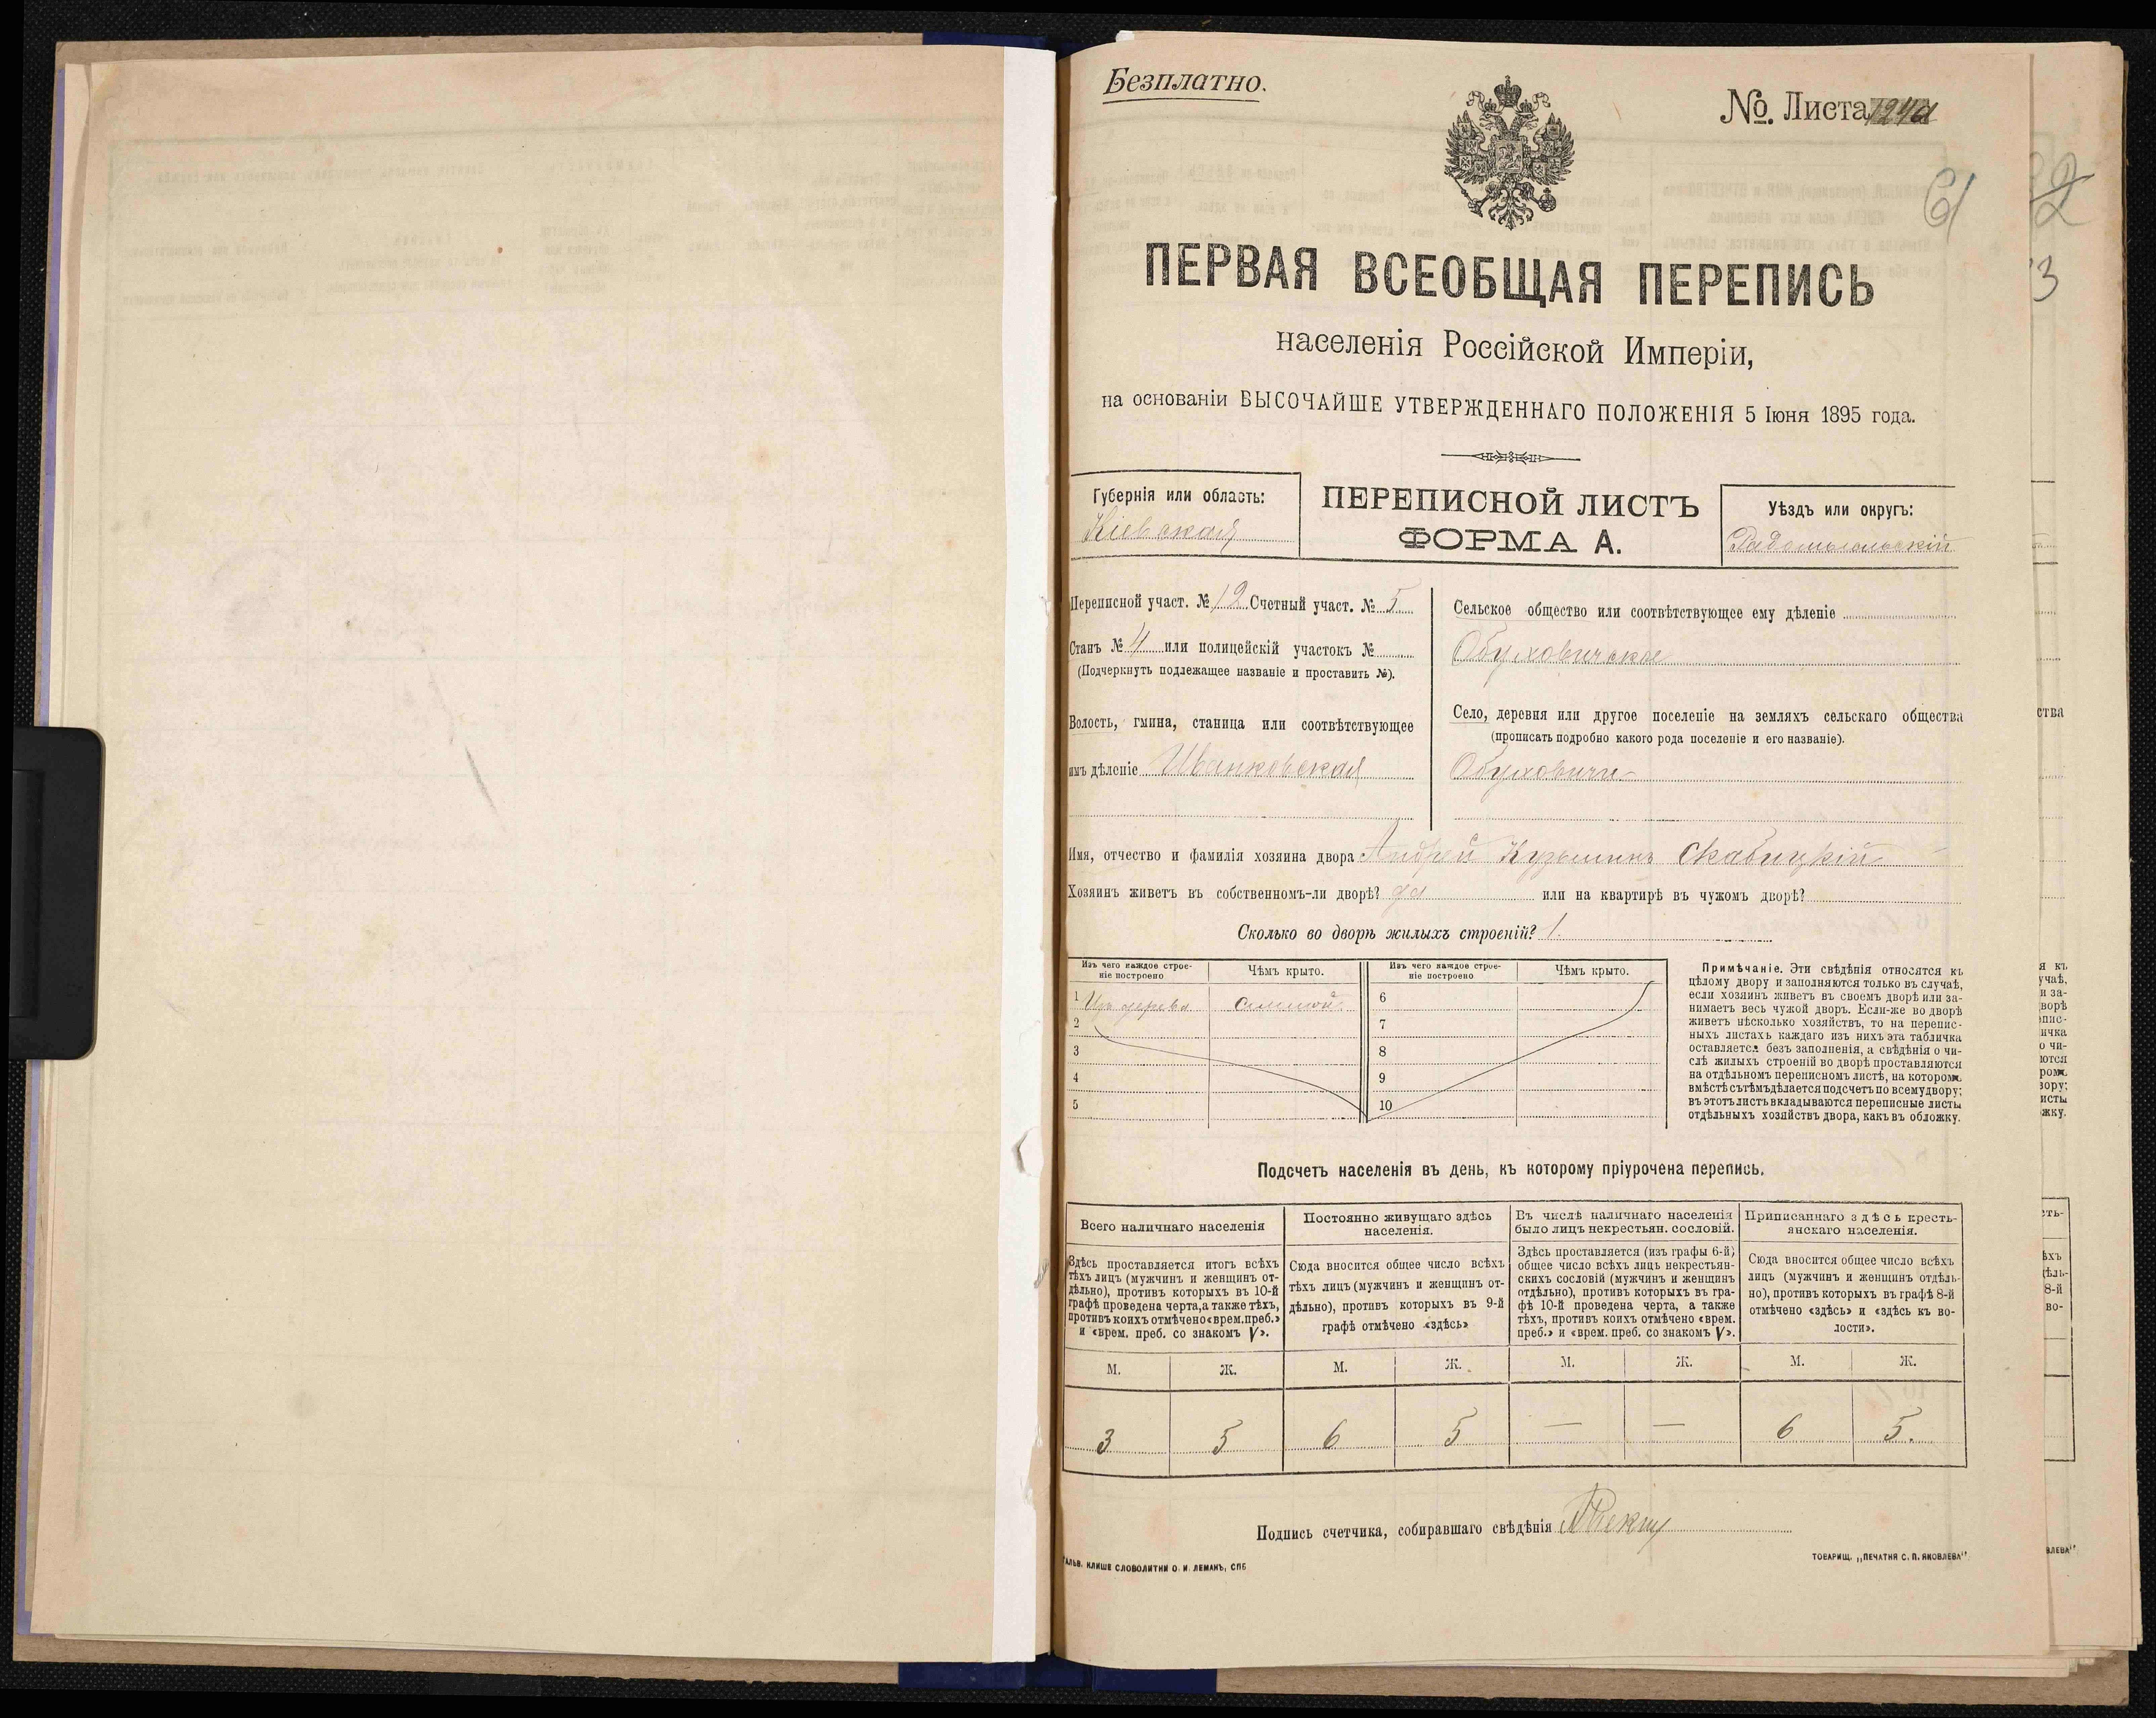 Безплатно.
№ Листа
61
ПЕРВАЯ ВСЕОБЩАЯ ПЕРЕПИСЬ
населенія Россійской Имперіи,
на основаніи ВЫСОЧАЙШЕ УТВЕРЖДЕННАГО ПОЛОЖЕНІЯ 5 Іюня 1895 года.
Губернія или область:
Кіевская
ПЕРЕПИСНОЙ ЛИСТЪ
ФОРМА А.
Уѣздъ или округъ:
Радомысльскій
Переписной участ. № 12 Счетный участ. № 5
Станъ № 4 или полицейскій участокъ №
(Подчеркнуть подлежащее названіе и проставить №).
Волость, гмина, станица или соотвѣтствующее
имъ дѣленіе Иванковская
Сельское общество или соотвѣтствующее ему дѣленіе
Обуховичское
Село, деревня или другое поселеніе на земляхъ сельскаго общества
(прописать подробно какого рода поселеніе и его названіе).
Обуховичи
Имя, отчество и фамилія хозяина двора Андрей Кузьминъ Скабицкій
Хозяинъ живетъ въ собственномъ-ли дворѣ? да или на квартирѣ въ чужомъ дворѣ?
Сколько во дворѣ жилыхъ строеній? 1.
Изъ чего каждое строе-
ніе построено
Чѣмъ крыто.
Изъ чего каждое строе-
ніе построено
Чѣмъ крыто.
1 Изъ дерева соломой 6
2 7
3 8
4 9
5 10
Примѣчаніе. Эти свѣдѣнія относятся къ
цѣлому двору и заполняются только въ случаѣ,
если хозяинъ живетъ въ своемъ дворѣ или за-
нимаетъ весь чужой дворъ. Если-же во дворѣ
живетъ нѣсколько хозяйствъ, то на перепис-
ныхъ листахъ каждаго изъ нихъ эта табличка
оставляется безъ заполненія, а свѣдѣнія о чи-
слѣ жилыхъ строеній во дворѣ проставляются
на отдѣльномъ переписномъ листѣ, на которомъ
вмѣстѣ съ тѣмъ дѣлается подсчетъ по всему двору;
въ этотъ листъ вкладываются переписные листы
отдѣльныхъ хозяйствъ двора, какъ въ обложку.
Подсчетъ населенія въ день, къ которому пріурочена перепись.
Всего наличнаго населенія
Постоянно живущаго здѣсь
населенія.
Въ числѣ наличнаго населенія
было лицъ некрестьян. сословій.
Приписаннаго здѣсь кресть-
янскаго населенія.
Здѣсь проставляется итогъ всѣхъ
тѣхъ лицъ (мужчинъ и женщинъ от-
дѣльно), противъ которыхъ въ 10-й
графѣ проведена черта, а также тѣхъ,
противъ коихъ отмѣчено «врем. преб.»
и «врем. преб. со знакомъ V».
Сюда вносится общее число всѣхъ
тѣхъ лицъ (мужчинъ и женщинъ от-
дѣльно), противъ которыхъ въ 9-й
графѣ отмѣчено «здѣсь»
Здѣсь проставляется (изъ графы 6-й)
общее число всѣхъ лицъ некрестьян-
скихъ сословій (мужчинъ и женщинъ
отдѣльно), противъ которыхъ въ гра-
фѣ 10-й проведена черта, а также
тѣхъ, противъ коихъ отмѣчено «врем.
преб.» и «врем. преб. со знакомъ V».
Сюда вносится общее число всѣхъ
лицъ (мужчинъ и женщинъ отдѣль-
но), противъ которыхъ въ графѣ 8-й
отмѣчено «здѣсь» и «здѣсь къ во-
лости».
М. Ж. М. Ж. М. Ж. М. Ж.
3 5 6 5 — — 6 5.
Подпись счетчика, собиравшаго свѣдѣнія
ГАЛЬВ. КЛИШЕ СЛОВОЛИТНИ О. И. ЛЕМАНЪ, СПБ
ТОВАРИЩ. „ПЕЧАТНЯ С. П. ЯКОВЛЕВА“